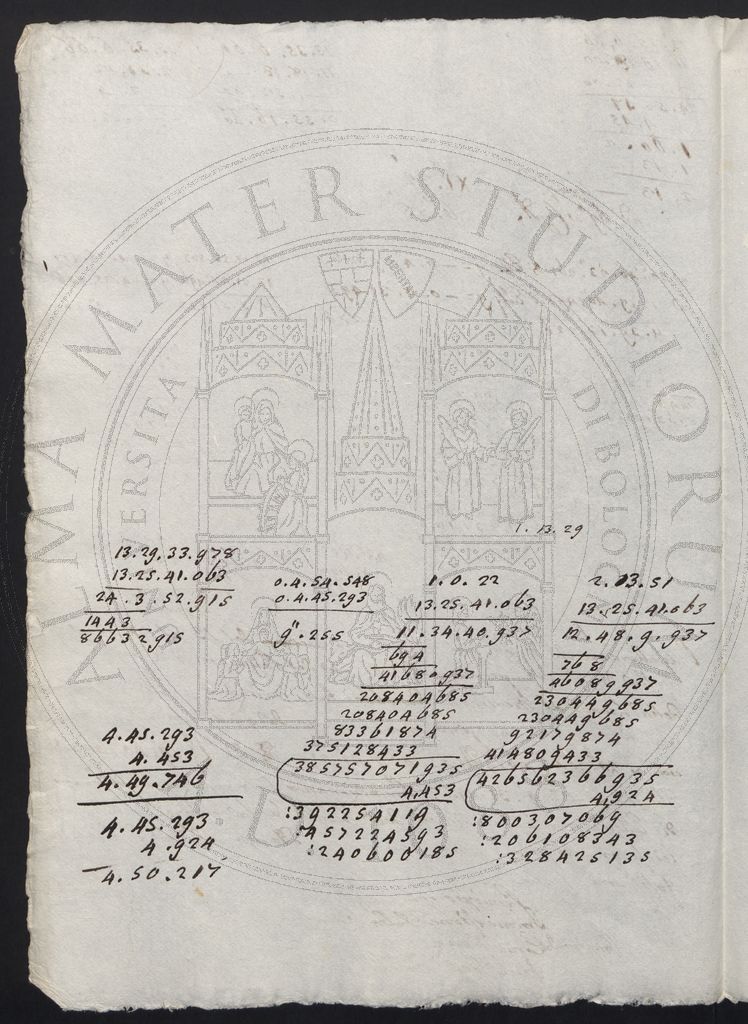 ALMA MATER STUDIORUM
UNIVERSITA DI BOLOGNA
A.D. 1088
1. 13. 29
13. 29. 33. 978
13. 25. 41. 063
24. 3. 52. 915
1443
86632915
0. 4. 54. 548
0. 4. 45. 293
9". 255
1. 0. 22
13. 25. 41. 063
11. 34. 40. 937
694
41680937
208404685
208404685
83361874
375128433
385757071935
4,453
:392254119
:457224593
:240600185
2. 13. 51
13. 25. 41. 063
12. 48. 9. 937
768
46089937
230449685
230449685
92179874
414809433
426562366935
4,924
:800307069
:206108343
:328425135
4. 45. 293
4. 453
4. 49. 746
4. 45. 293
4. 924
4. 50. 217